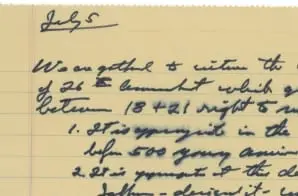 July 5
We are gathered to witness the
of 26th Amendment which g
between 18 + 21 right to
1. It is appropriate in the
before 500 young
2. It is appropriate that the